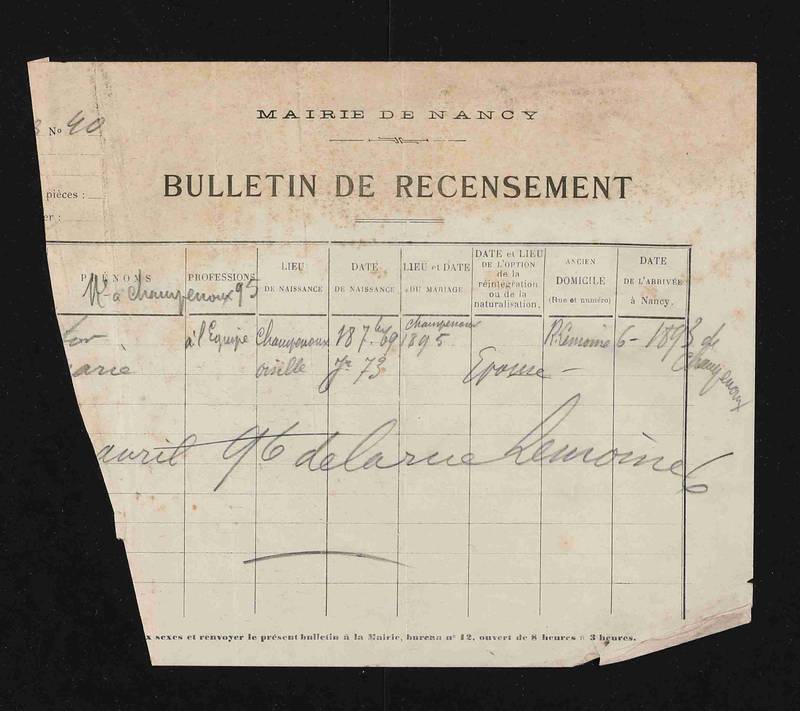 MAIRIE DE NANCY
No 40
BULLETIN DE RECENSEMENT
pièces :
er :
PRÉNOMS
PROFESSIONS
LIEU
DE NAISSANCE
DATE
DE NAISSANCE
LIEU et DATE
DU MARIAGE
DATE et LIEU
DE L'OPTION
de la
réintégration
ou de la
naturalisation.
ANCIEN
DOMICILE
(Rue et numéro)
DATE
DE L'ARRIVÉE
à Nancy.
à Champenoux 95
à l'Equipe Champenoux 18 7bre 69 Champenoux 1895 R. Lemoine 6 - 1898 de Champenoux
arie oiselle 73 Epouse -
avril 96 de la rue Lemoine 6
x sexes et renvoyer le présent bulletin à la Mairie, bureau n° 12, ouvert de 8 heures à 3 heures.